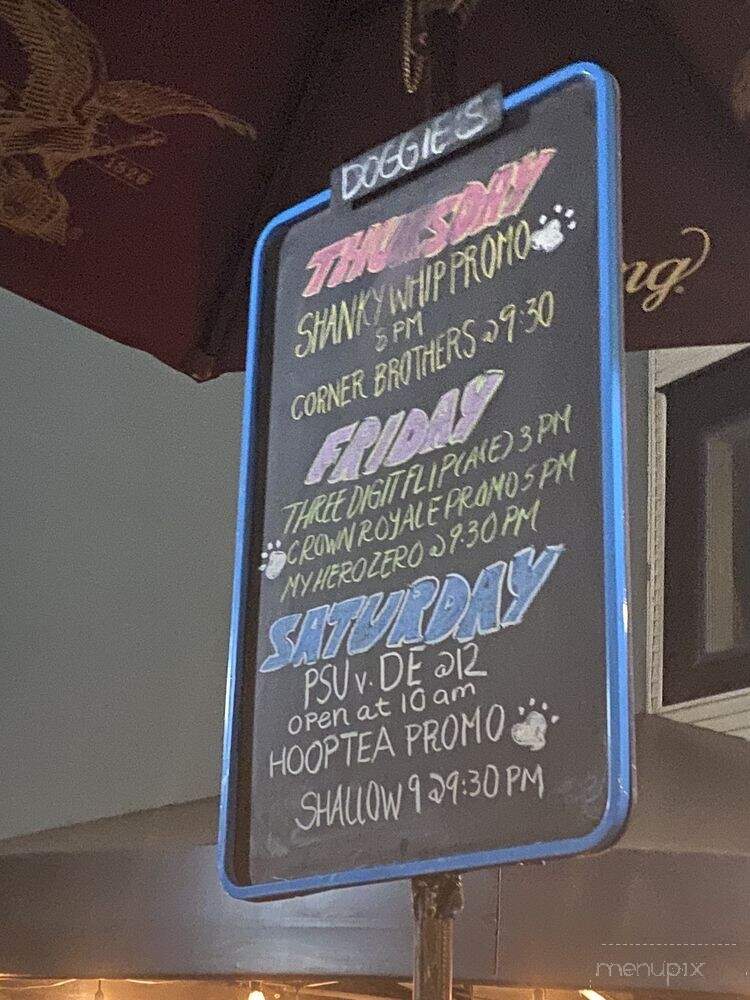 1829
ng.
DOGGIE'S
THURSDAY
SHANKY WHIP PROMO
8 PM
CORNER BROTHERS @9:30
FRIDAY
THREE DIGIT FLIP 3 PM
CROWN ROYALE PROMO 5 PM
MY HERO ZERO @9:30 PM
SATURDAY
PSU v. DE @12
open at 10 am
HOOPTEA PROMO
SHALLOW 9 @9:30 PM
menupix